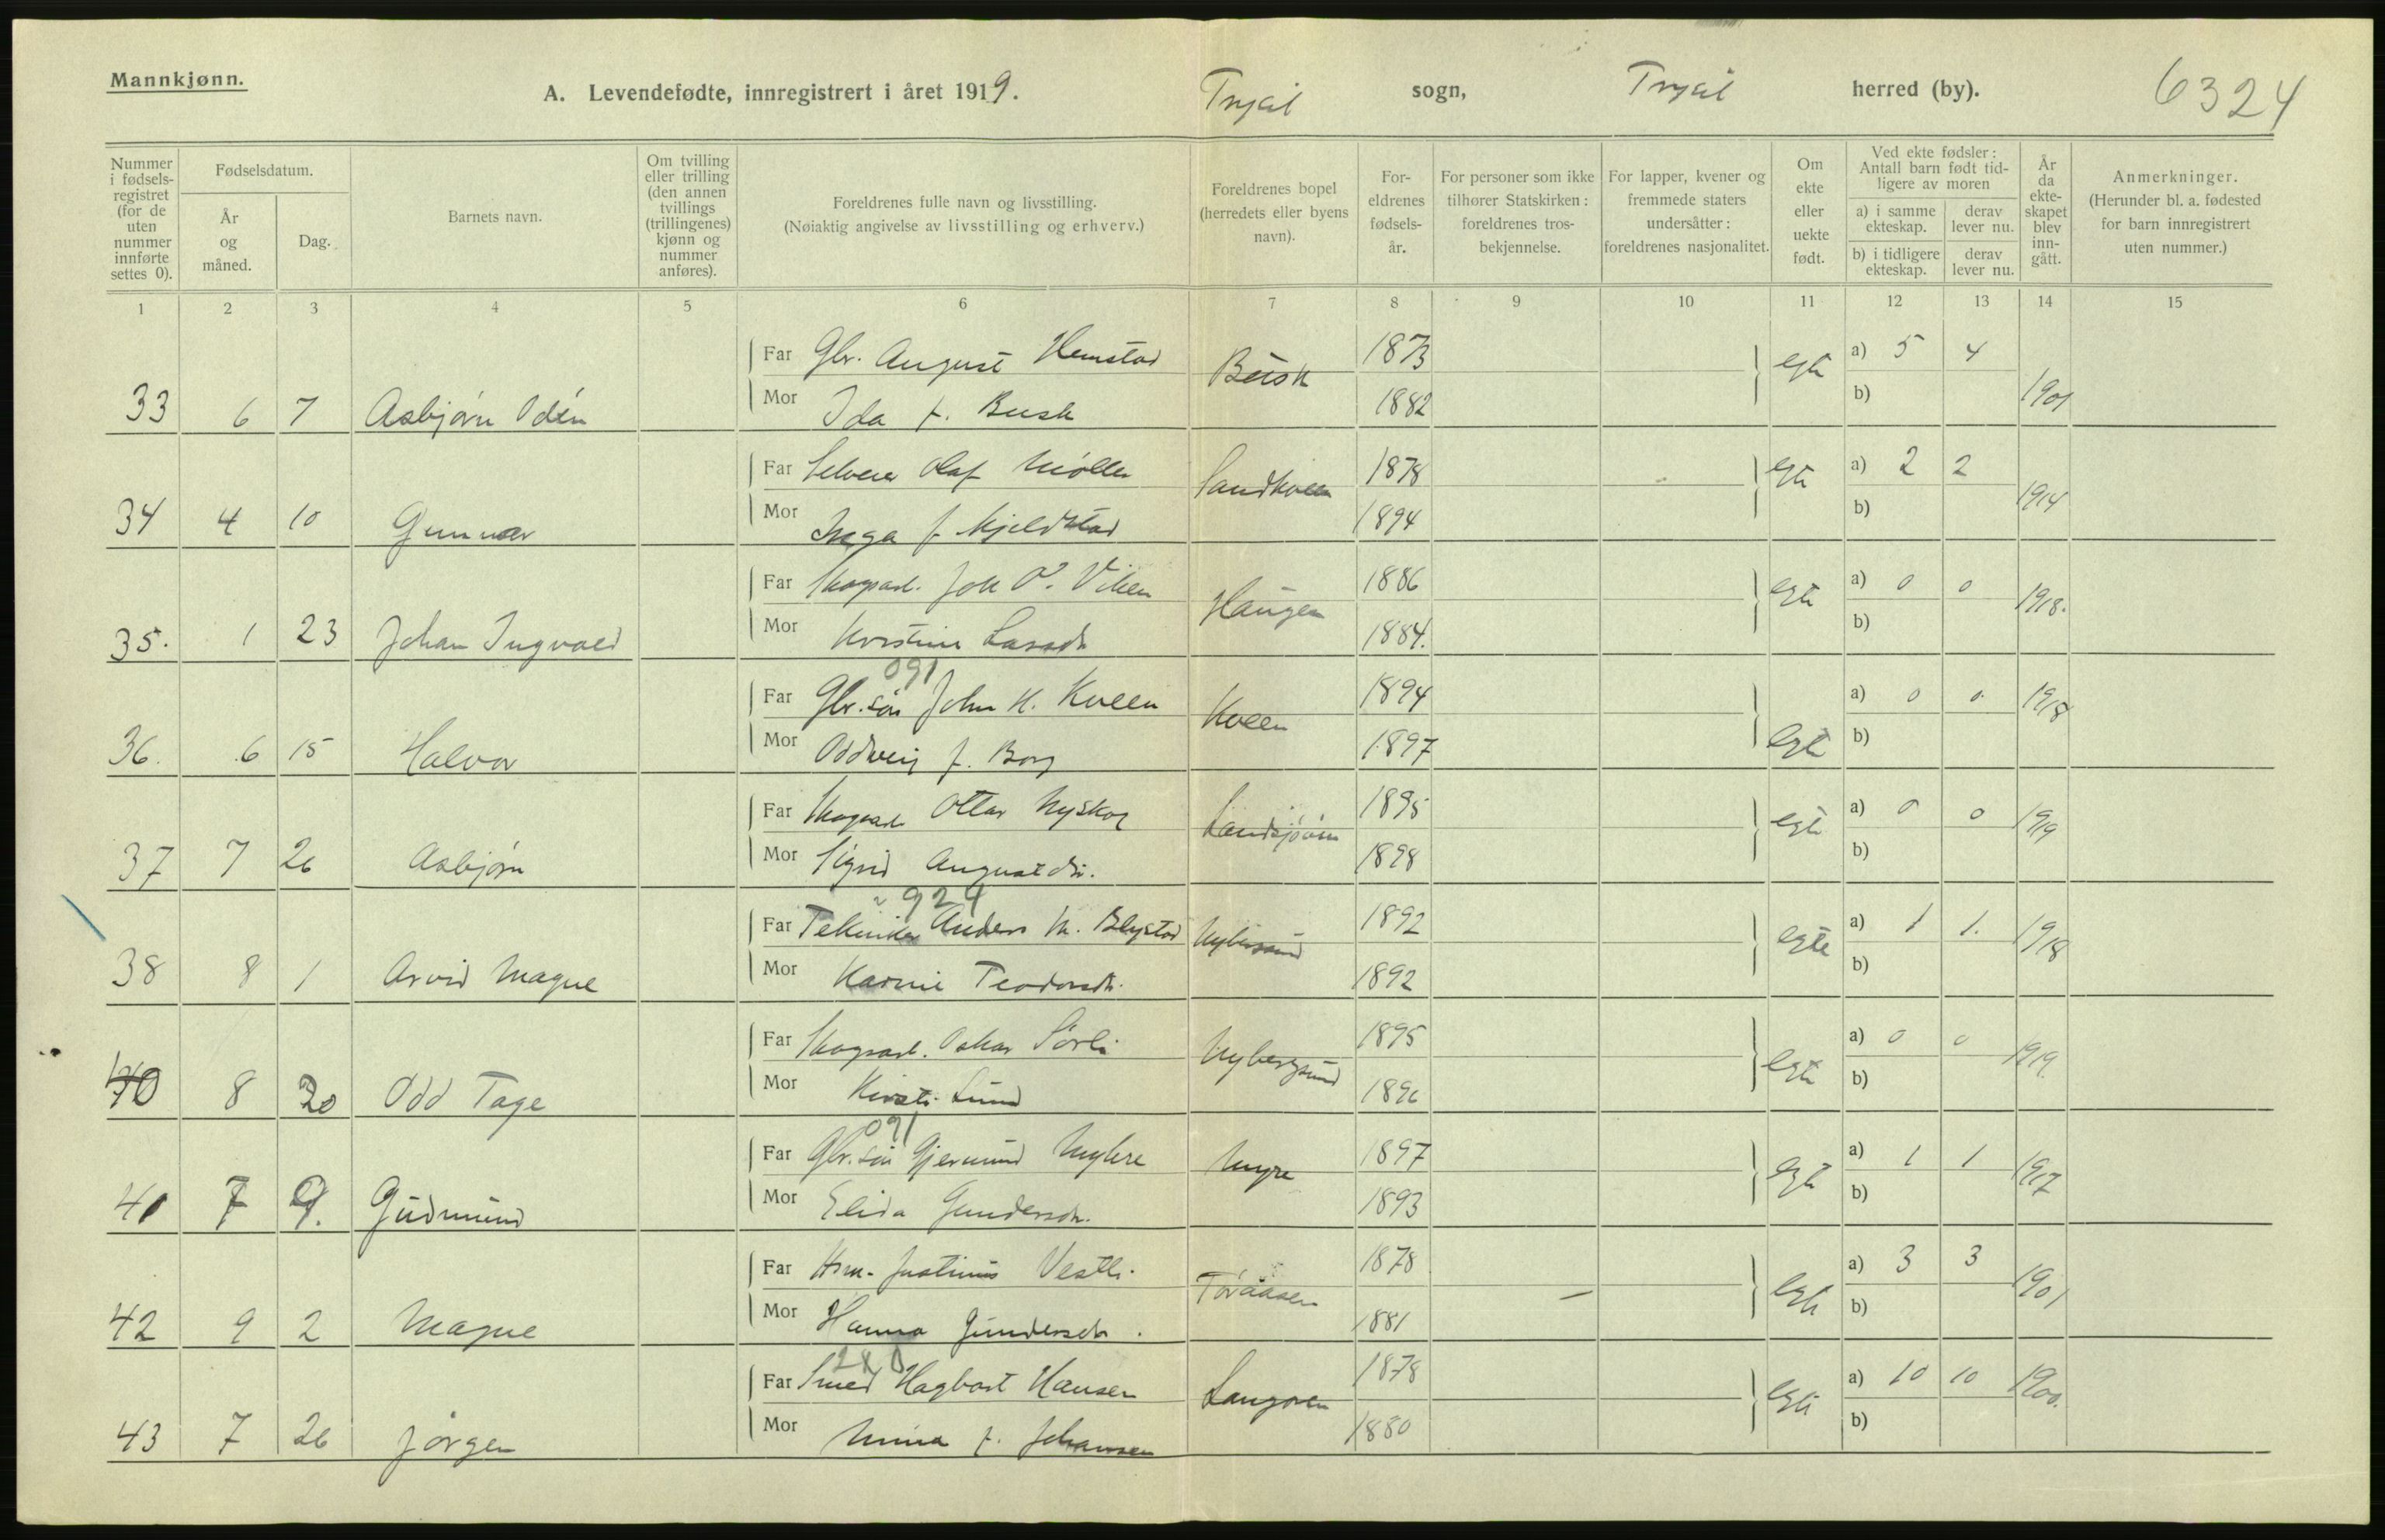 Mannkjønn.
A. Levendefødte, innregistrert i året 1919. Trysil sogn, Trysil herred (by). 6324
Nummer i fødsels-registret (for de uten nummer innførte settes 0).
Fødselsdatum.
År og måned.
Dag.
Barnets navn.
Om tvilling eller trilling (den annen tvillings (trillingenes) kjønn og nummer anføres).
Foreldrenes fulle navn og livsstilling.
(Nøiaktig angivelse av livsstilling og erhverv.)
Foreldrenes bopel (herredets eller byens navn).
For-eldrenes fødsels-år.
For personer som ikke tilhører Statskirken: foreldrenes tros-bekjennelse.
For lapper, kvener og fremmede staters undersåtter: foreldrenes nasjonalitet.
Om ekte eller uekte født.
Ved ekte fødsler: Antall barn født tid-ligere av moren
a) i samme ekteskap.
derav lever nu.
b) i tidligere ekteskap.
derav lever nu.
År da ekte-skapet blev inn-gått.
Anmerkninger.
(Herunder bl. a. fødested for barn innregistrert uten nummer.)
1 2 3 4 5 6 7 8 9 10 11 12 13 14 15
Far Gbr. August Hemstad 1873 a) 5 4
33 6 7 Asbjørn Odén Mor Ida f. Busk Busk 1882 egte b) 1901
Far Selveier Olaf Møller 1878 a) 2 2
34 4 10 Gunnar Mor Inga f. Kjeldstad Sandkveen 1894 egte b) 1914
Far Skogsarb. Joh O. Viken 1886 a) 0 0
35. 1 23 Johan Ingvald Mor Kristine Larsdtr Haugen 1884. egte b) 1918.
091
Far Gbr.søn John H. Kveen 1894 a) 0 0
36. 6 15 Halvor Mor Oddveig f. Borg Kveen 1897 egte b) 1918
Far Skogsarb Ottar Nyskog 1895 a) 0 0
37 7 26 Asbjørn Mor Sigrid Augustdtr. Landsjøåsen 1898 egte b) 1919
924
Far Tekniker Anders M. Blystad 1892 a) 1 1.
38 8 1 Arvid Magne Mor Karine Teodorsdtr. Nybergsund 1892 egte b) 1918
Far Skogsarb. Oskar Sörli 1895 a) 0 0
40 8 20 Odd Tage Mor Kirsti Lund Nybergsund 1896 egte b) 1919.
091
Far Gbr.søn Gjermund Myhre 1897 a) 1 1
41 7 9. Gudmund Mor Elida Gundersdtr. Myre 1893 egte b) 1917
Far Hsm. Justinus Vestli. 1878 a) 3 3
42 9 2 Magne Mor Hanna Gundersdtr. Toråasen 1881 egte b) 1901
280
Far Smed Hagbart Hansen 1878 a) 10 10
43 7 26 Jørgen Mor Mina f. Johansen Langoren 1880 egte b) 1900.